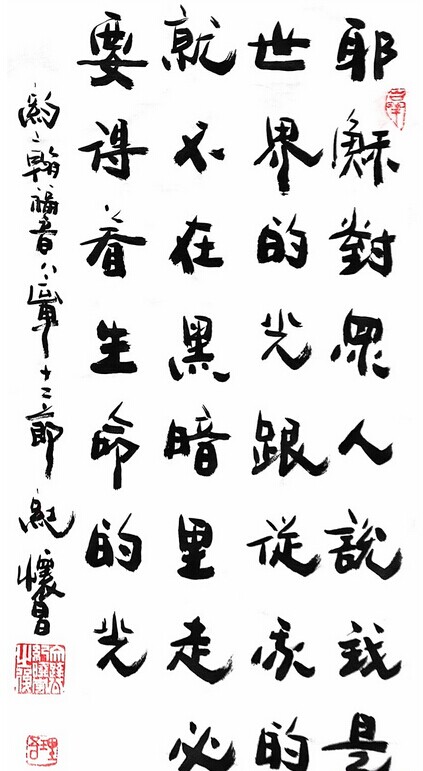 耶穌對眾人說我是
世界的光跟從我的
就不在黑暗里走必
要得着生命的光
約翰福音八章十二節 紀懷昌